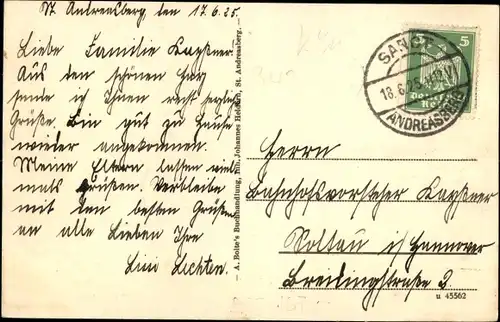 St Andreasberg, den 17.6.25.
Liebe Familie Kaßner
Aus dem schönen Harz
sende ich Ihnen recht herzliche
Grüße. Bin gut zu Hause
wieder angekommen.
Meine Eltern lassen viel-
mals grüßen. Verbleibe
mit den besten Grüßen
an alle Lieben Ihre
Lini Lechten.
A. Bolte's Buchhandlung, Inh. Johannes Heldere, St. Andreasberg.
SANCT
18.6.25
ANDREASBERG
5
Herrn
Bahnhofsvorsteher Kaßner
Soltau i/Hannover
Breidingstraße 2.
u 45562